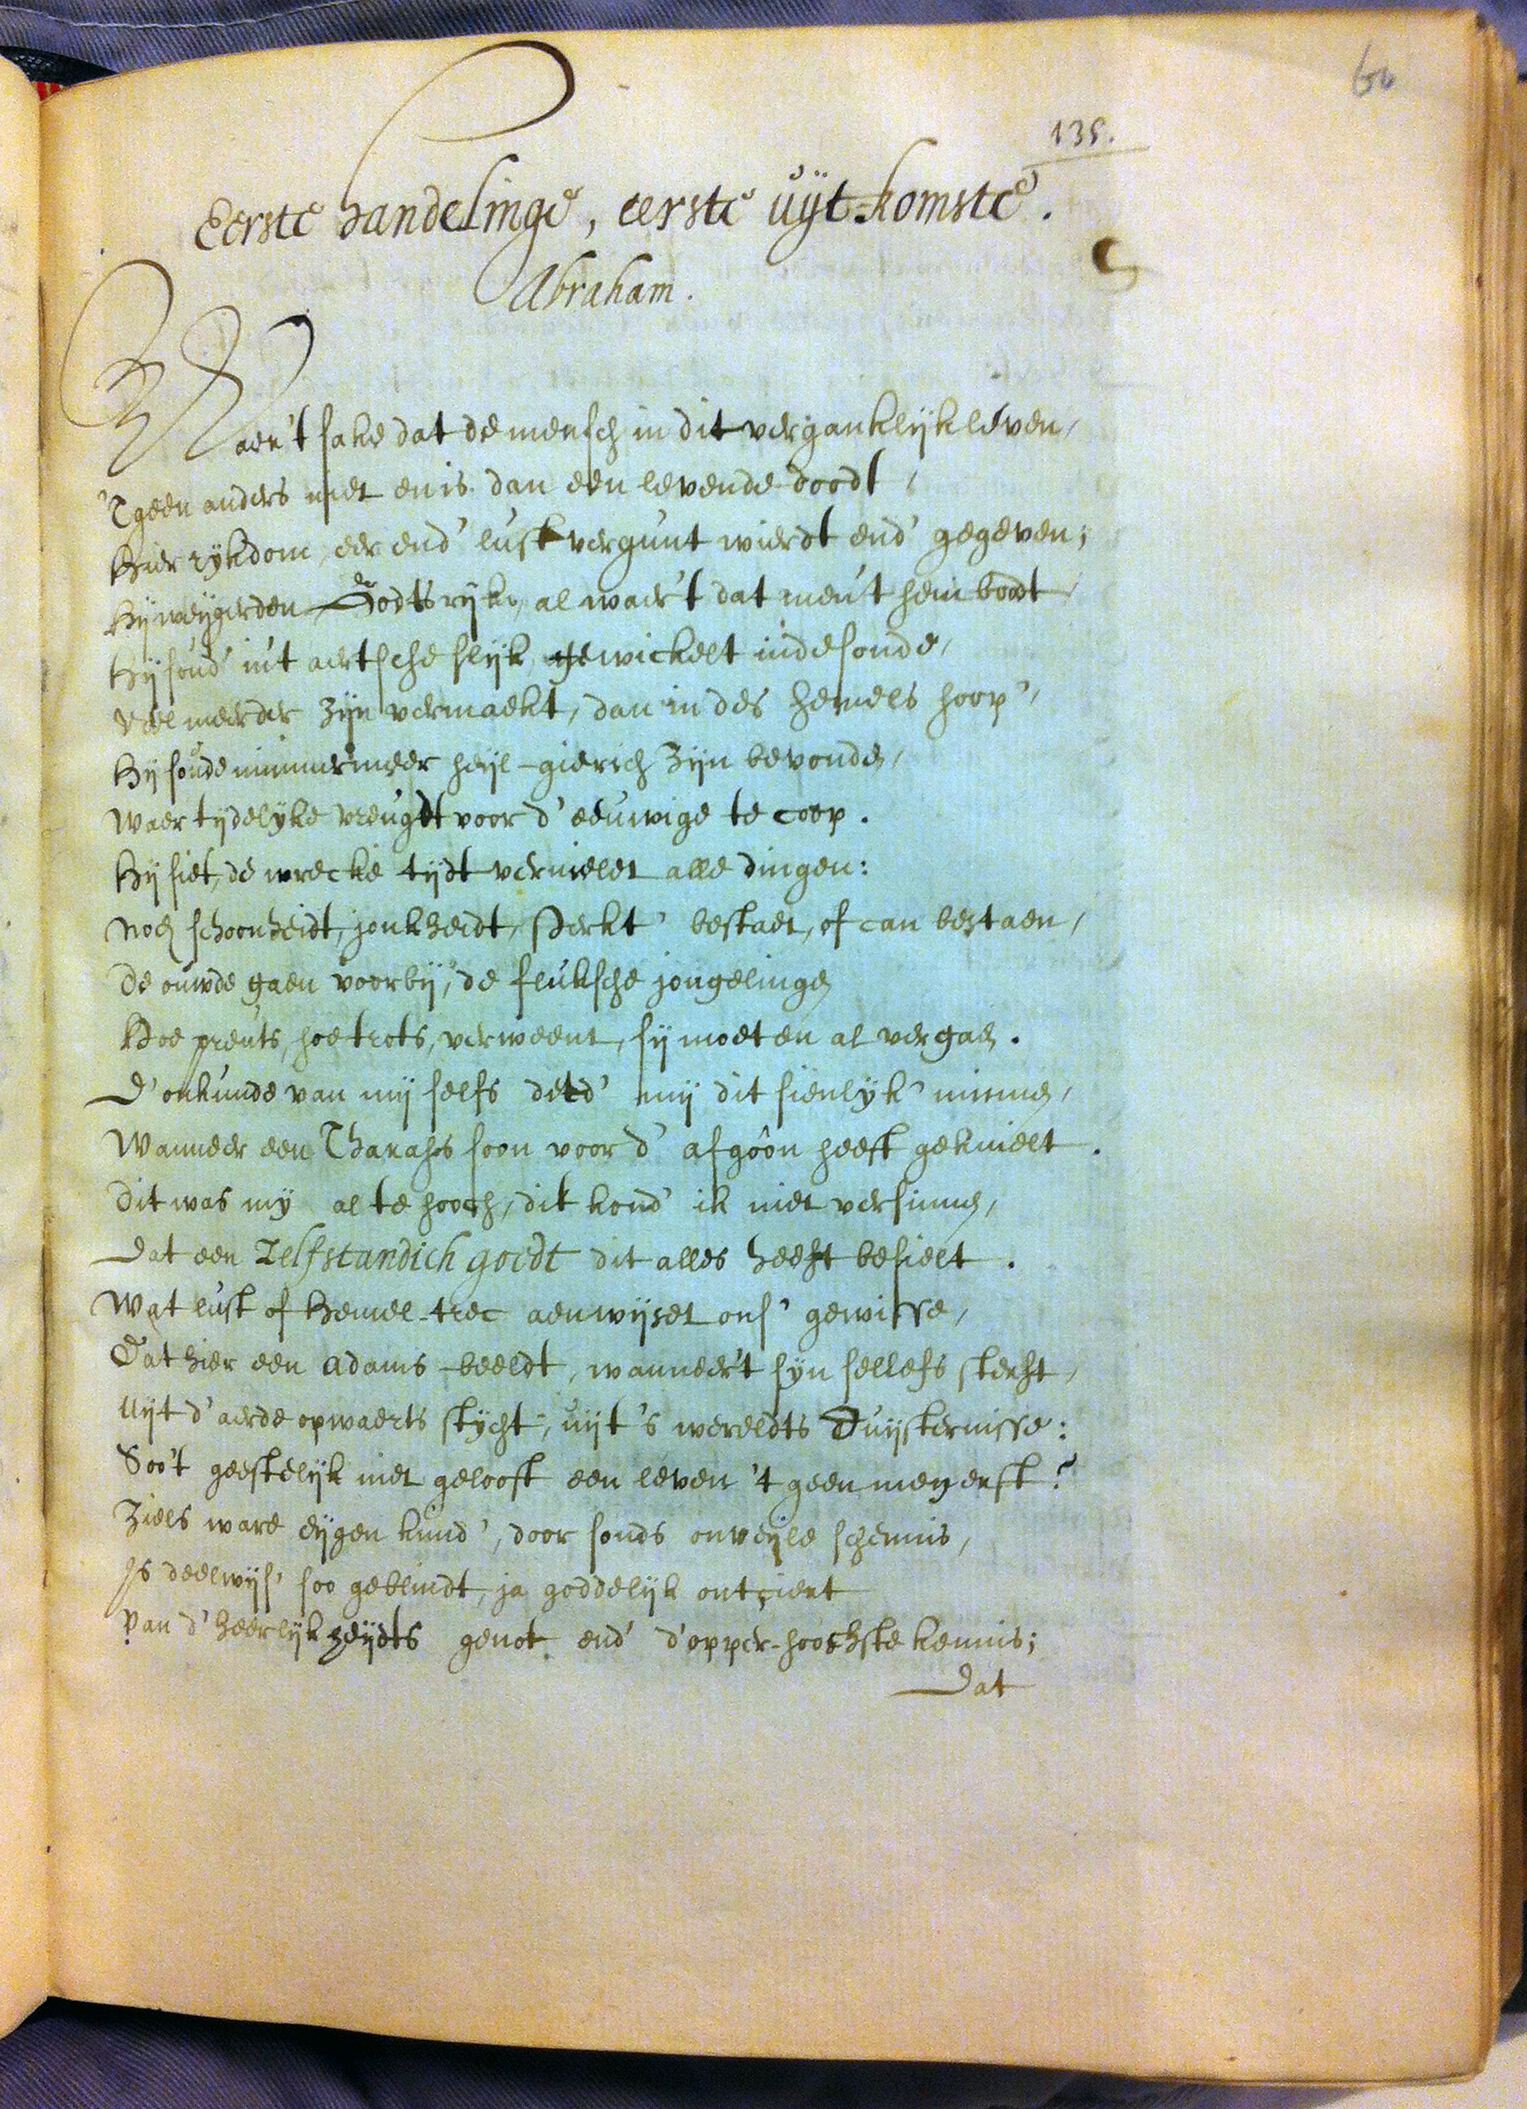 60
135.
Eerste handelinge, eerste uÿt-komste.
Abraham.
Waer't sake dat de mensch in dit verganklijk leven,
'T geen anders niet en is dan een levende doodt,
Hier rykdom, eer end' lust vergunt wierdt end' gegeven;
Hij weijgerden Godts rijke, al waer't dat men't hem boodt,
Hij soud' in't aertsche slijk, gewickelt in de sonde,
Veel meerder zijn vermaekt, dan in des hemels hoop,
Hij soude nimmermeer heijl-gierich zijn bevonde,
Waer tijdelyke vreugdt voor d'eeuwige te coop.
Hij siet, de wrecke tijdt vernielet alle dingen:
Noch schoonheidt, jonkheidt, sterkt' bestaet, of can bestaen,
De ouwde gaen voorbij, de fluksche jongelinge
Hoe preuts, hoe trots, verweent, sij moeten al vergaen.
D'onkunde van mij selfs deed' mij dit sienlyk' minne,
Wanneer een Tharahs soon voor d'afgôôn heeft geknielt.
Dit was mij al te hooch, dit kond' ik niet versinne,
Dat een zelfstandich goedt dit alles heeft besielt.
Wat lust of hemel-trec aenwijset ons' gewisse,
Dat hier een Adams-beeldt, wanneer't sijn sellefs sterft,
Uijt d'aerde opwaerts stijcht, uijt 's wereldts Duijsternisse:
Soo't geestelijk niet gelooft een leven 't geen men erft?
Ziels ware eijgen kund', door sonds onveijle schennis,
Is deelwijs' soo geblindt, ja goddelijk ontçiert
Van d'heerlijkheijdts genot end' d'opper-hoochste kennis;
Dat